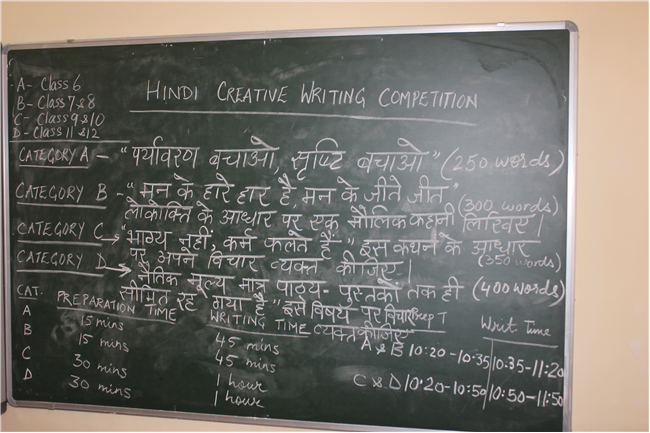 A- Class 6
B- Class 7 & 8
C- Class 9 & 10
D- Class 11 & 12
HINDI CREATIVE WRITING COMPETITION
CATEGORY A - "पर्यावरण बचाओ, सृष्टि बचाओ" (250 words)
CATEGORY B - "मन के हारे हार है, मन के जीते जीत"
लोकोक्ति के आधार पर एक मौलिक कहानी लिखिए। (300 words)
CATEGORY C → "भाग्य नहीं, कर्म फलते हैं" इस कथन के आधार
पर अपने विचार व्यक्त कीजिए। (350 words)
CATEGORY D → "नैतिक मूल्य मात्र पाठ्य-पुस्तकों तक ही
सीमित रह गया है" इस विषय पर विचार व्यक्त कीजिए (400 words)
CAT. PREPARATION TIME WRITING TIME
A 15 mins 45 mins
B 15 mins 45 mins
C 30 mins 1 hour
D 30 mins 1 hour
Prep T Writ Time
A & B 10:20-10:35 10:35-11:20
C & D 10:20-10:50 10:50-11:50